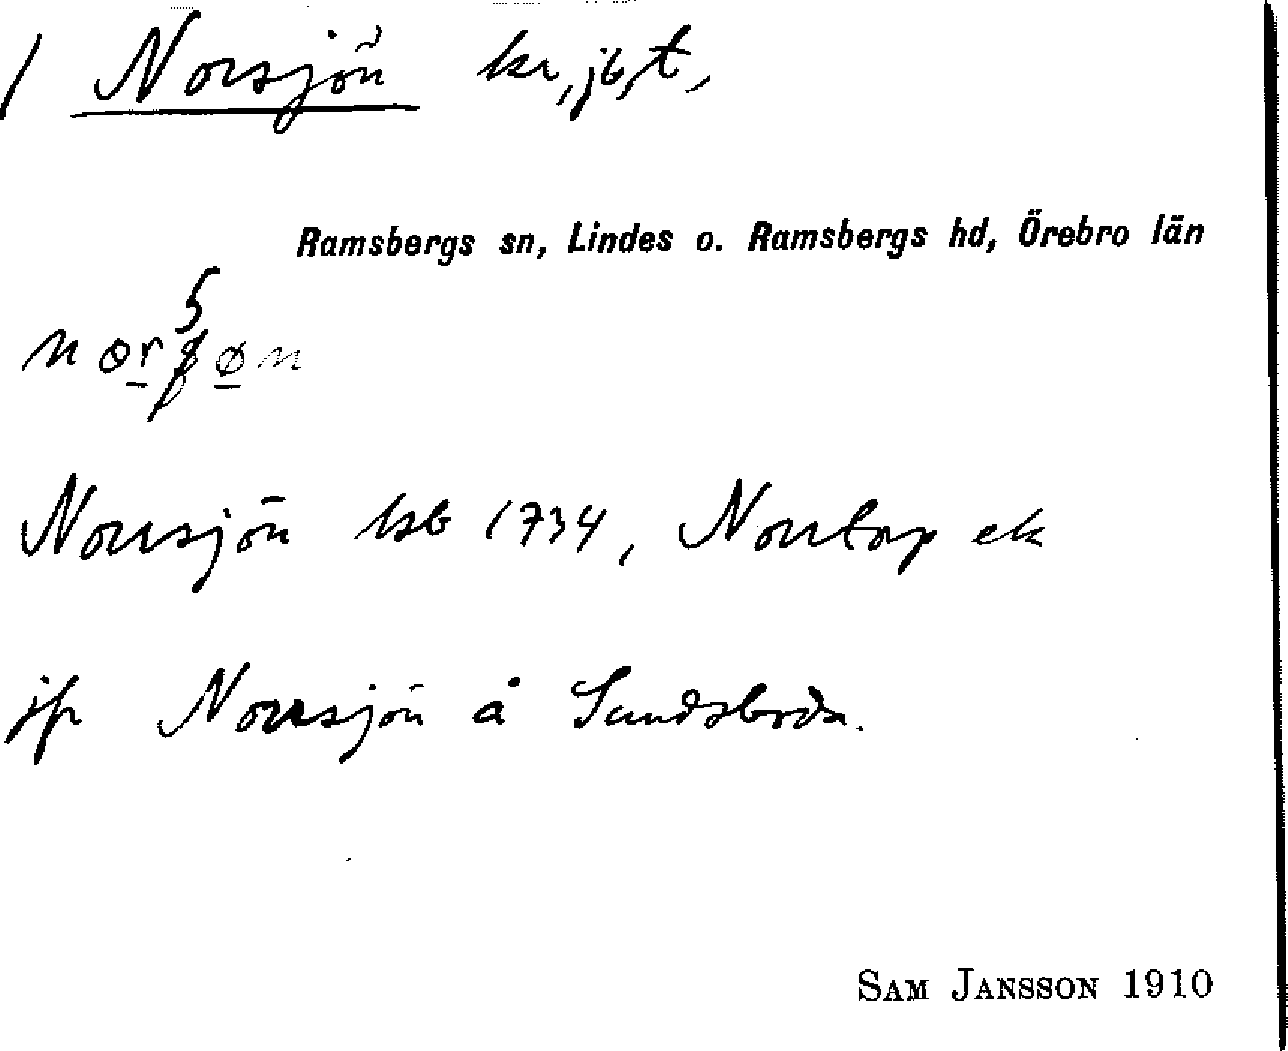 / Norsjön kr, jb, t,
Ramsbergs sn, Lindes o. Ramsbergs hd, Örebro län
Norrsjön hsb 1734, Norrtorp ek
jfr Norrsjön å Sundsborda.
SAM JANSSON 1910